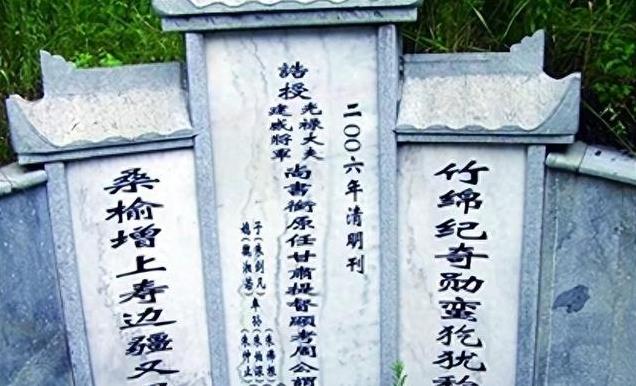 竹绵纪奇勋蛮犵犹
二〇〇六年清明刊
誥授
光禄大夫
建威將軍
尚書銜原任甘肅提督顯考周公
子(朱剑凡)
媳(魏湘若)
率孙
朱伯深
朱仲止
桑榆增上寿边疆又